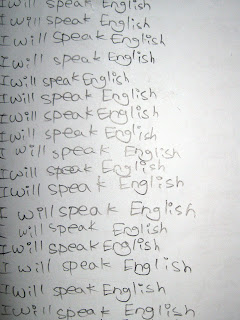 I will speak English
I will speak English
I will speak English
I will speak English
I will speak English
I will speak English
I will speak English
I will speak English
I will speak English
I will speak English
I will speak English
I will speak English
I will speak English
I will speak English
I will speak English
I will speak English
I will speak English